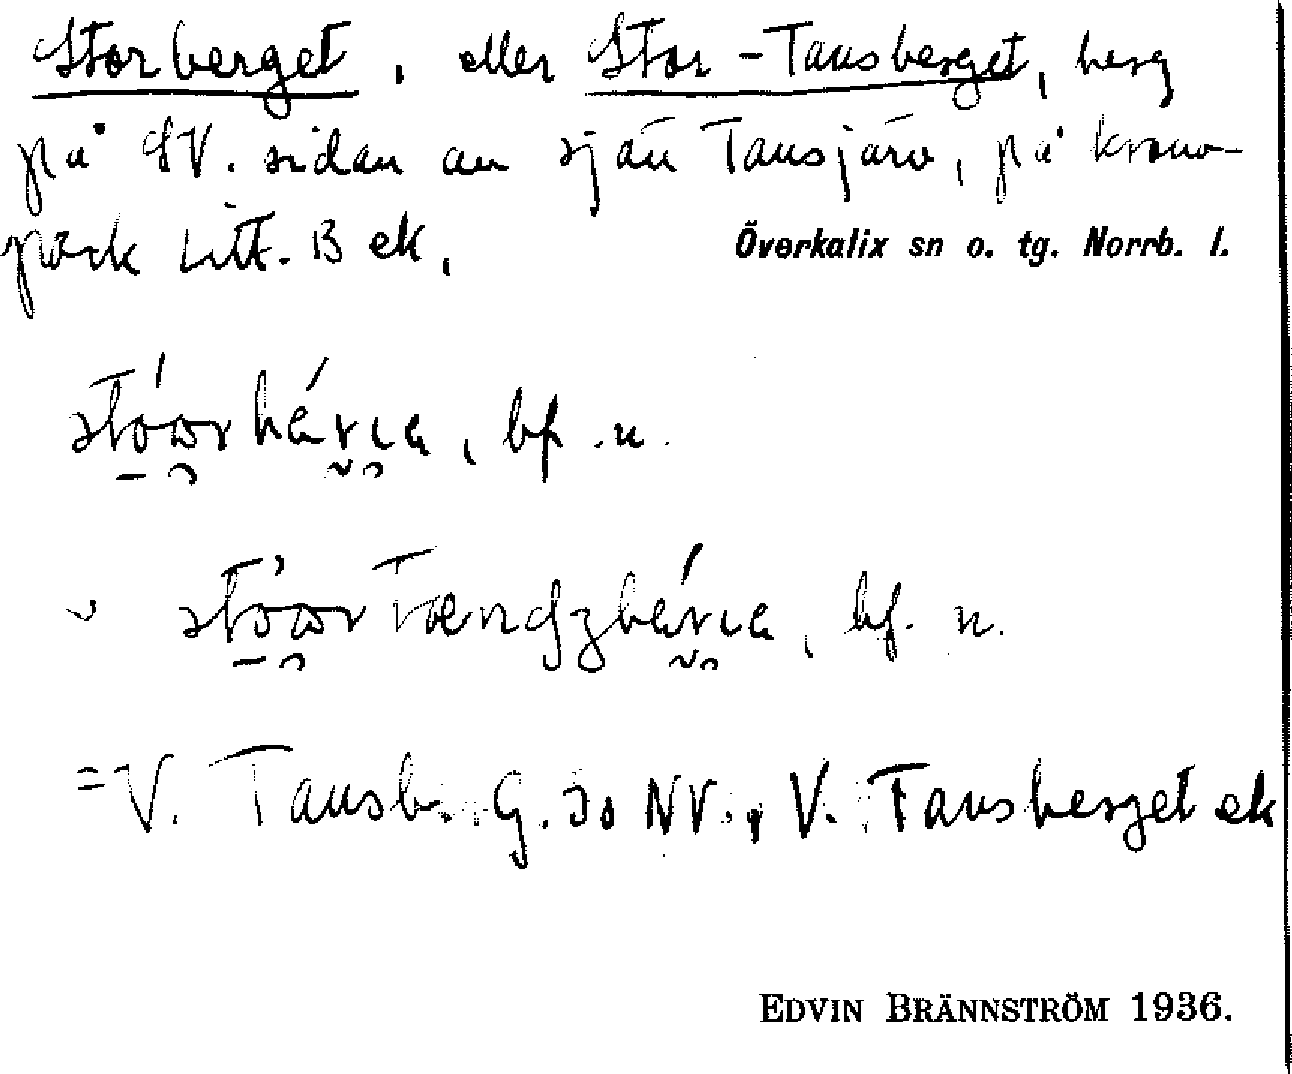 Storberget, eller Stor-Tansberget, berg
på SV. sidan av sjön Tansjärv, på krono-
park Litt. B ek.
Överkalix sn o. tg. Norrb. l.
bf. n.
bf. n.
= V. Tansb. G. 30 NV., V. Tansberget ek
EDVIN BRÄNNSTRÖM 1936.